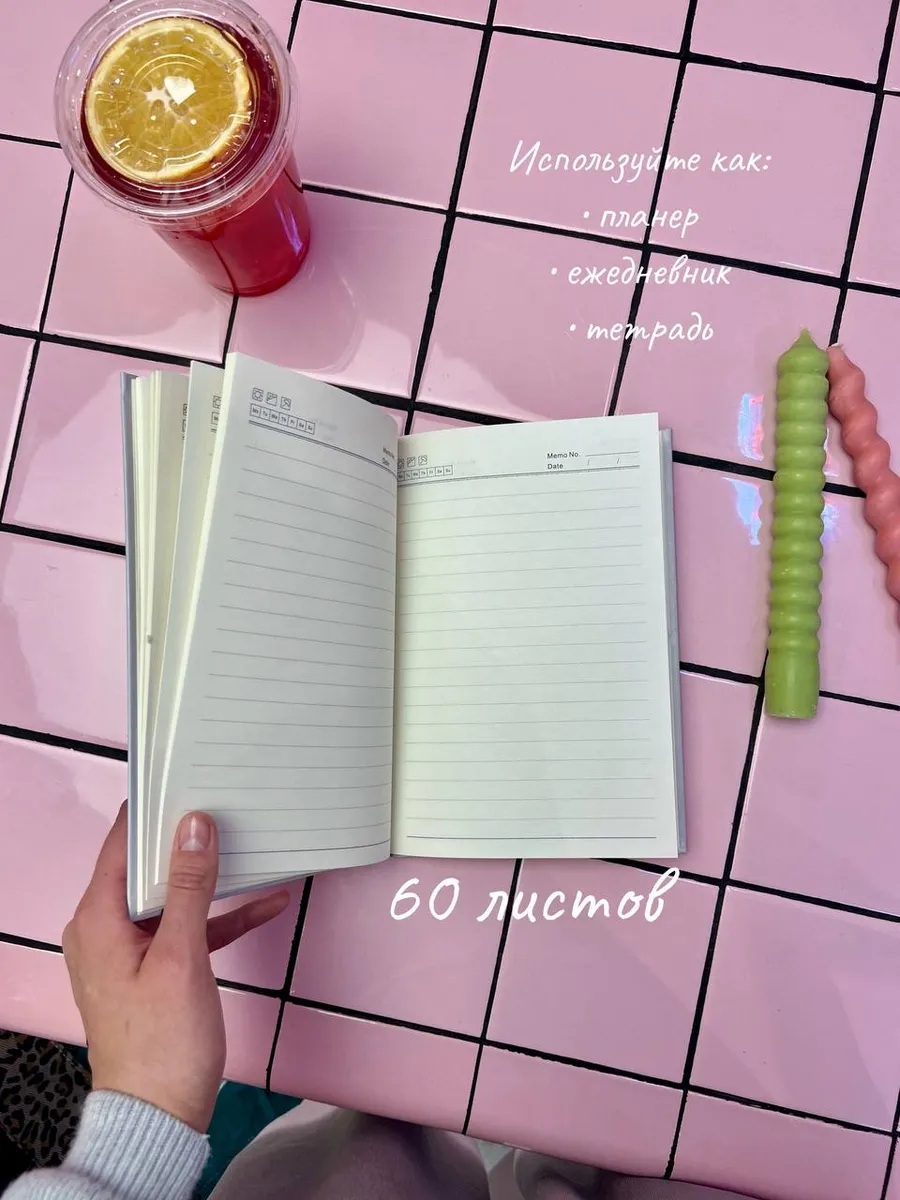 Используйте как:
• планер
• ежедневник
• тетрадь
Mo Tu We Th Fr Sa Su
Memo No.
Date / /
Mo Tu We Th Fr Sa Su
60 листов